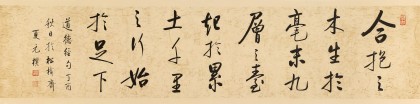 合抱之
木生於
毫末九
層之臺
起於累
土千里
之行始
於足下
道德經句丁酉
秋日於松齋
夏